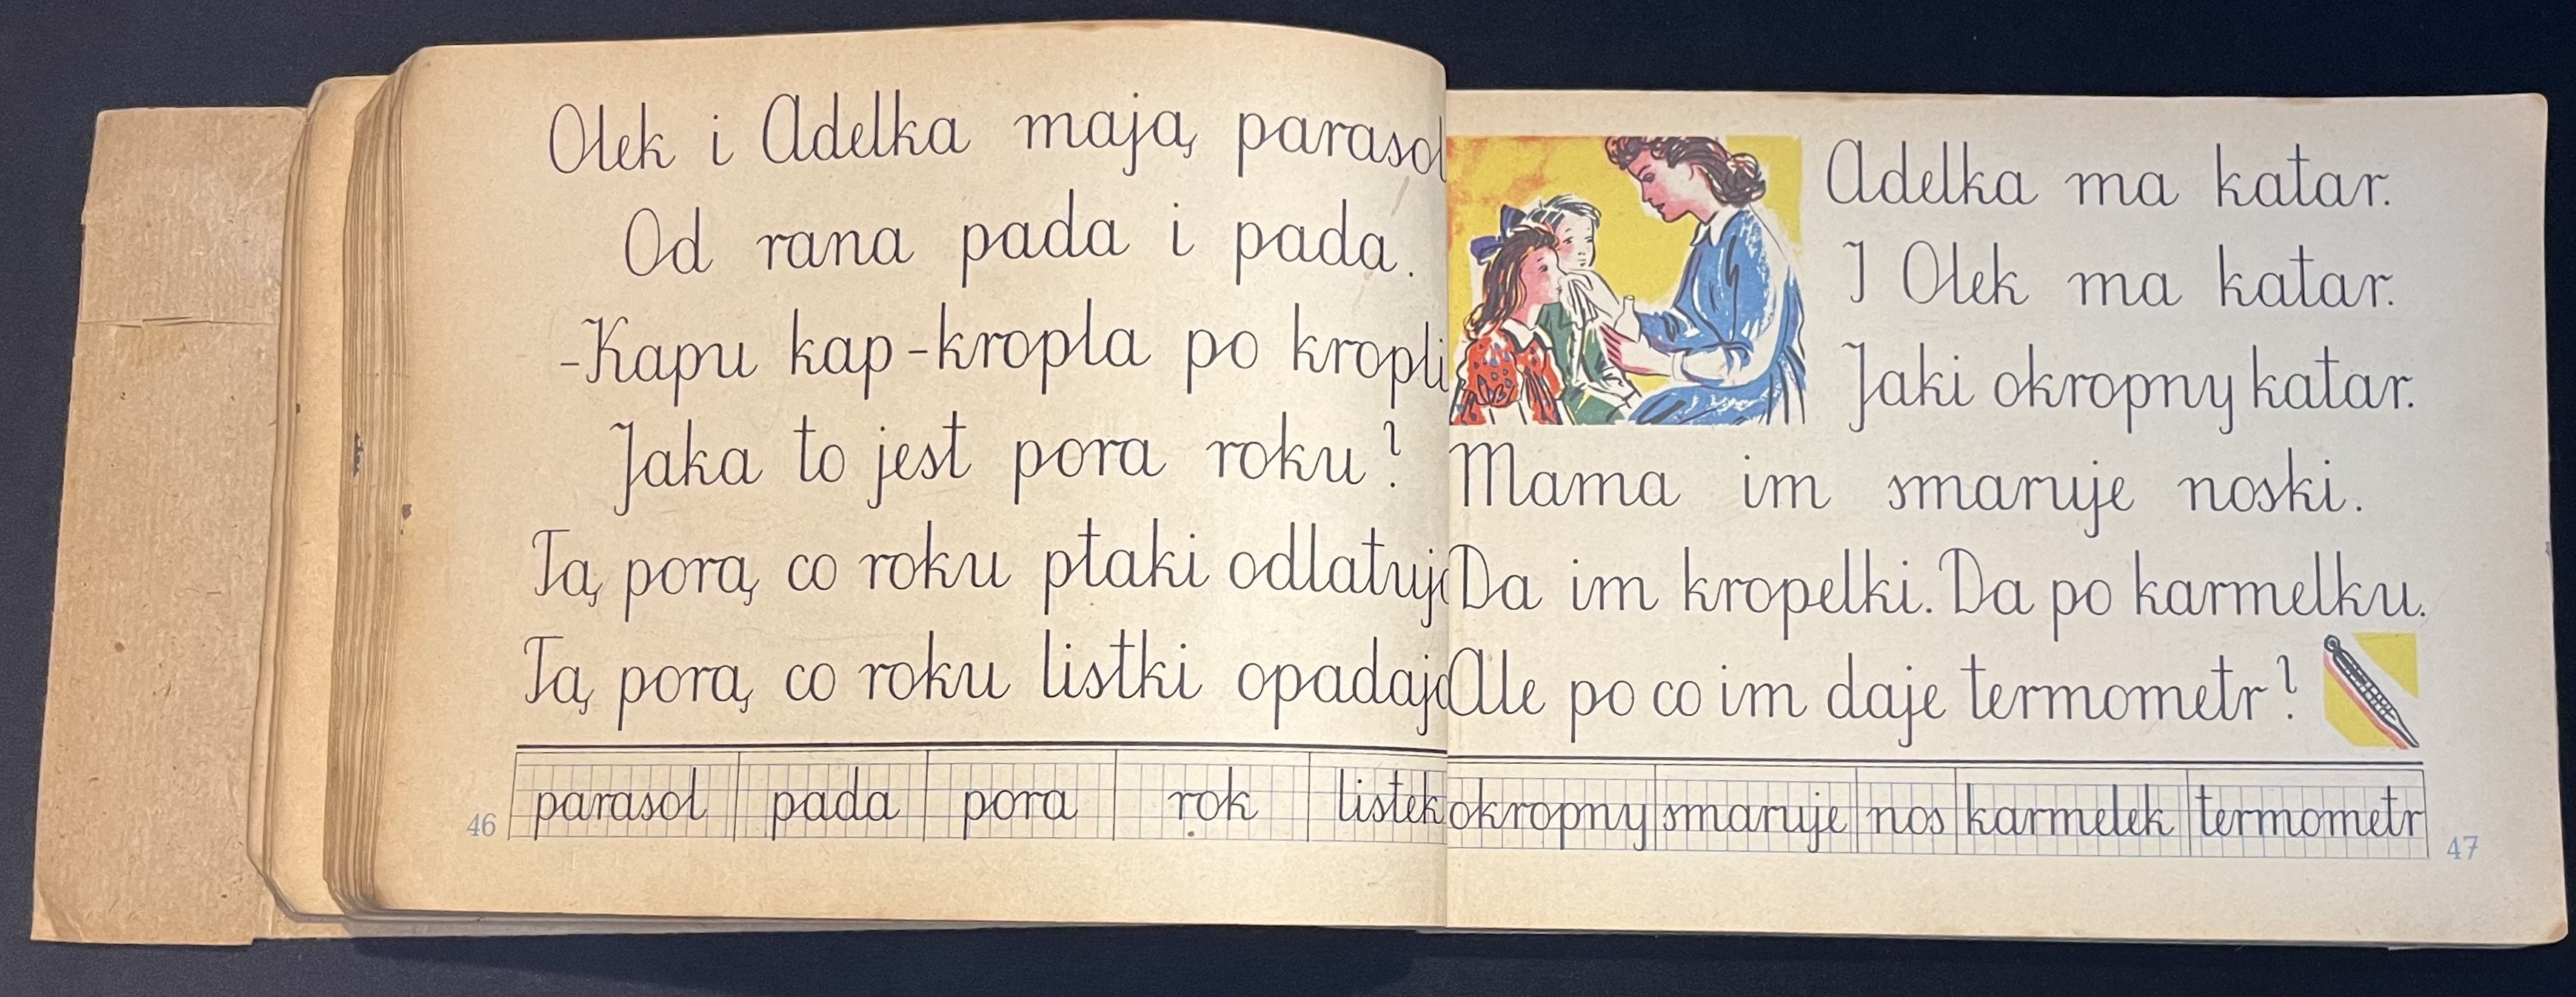 Olek i Adelka mają parasol
Od rana pada i pada.
-Kapu kap-kropla po kropli
Jaka to jest pora roku?
Tą porą co roku ptaki
Tą porą co roku listki
parasol pada pora rok listek
46
Adelka ma katar.
I Olek ma katar.
Jaki okropny katar.
Mama im smaruje noski.
Da im kropelki. Da po karmelku.
Ale po co im daje termometr?
okropny smaruje nos karmelek termometr
47